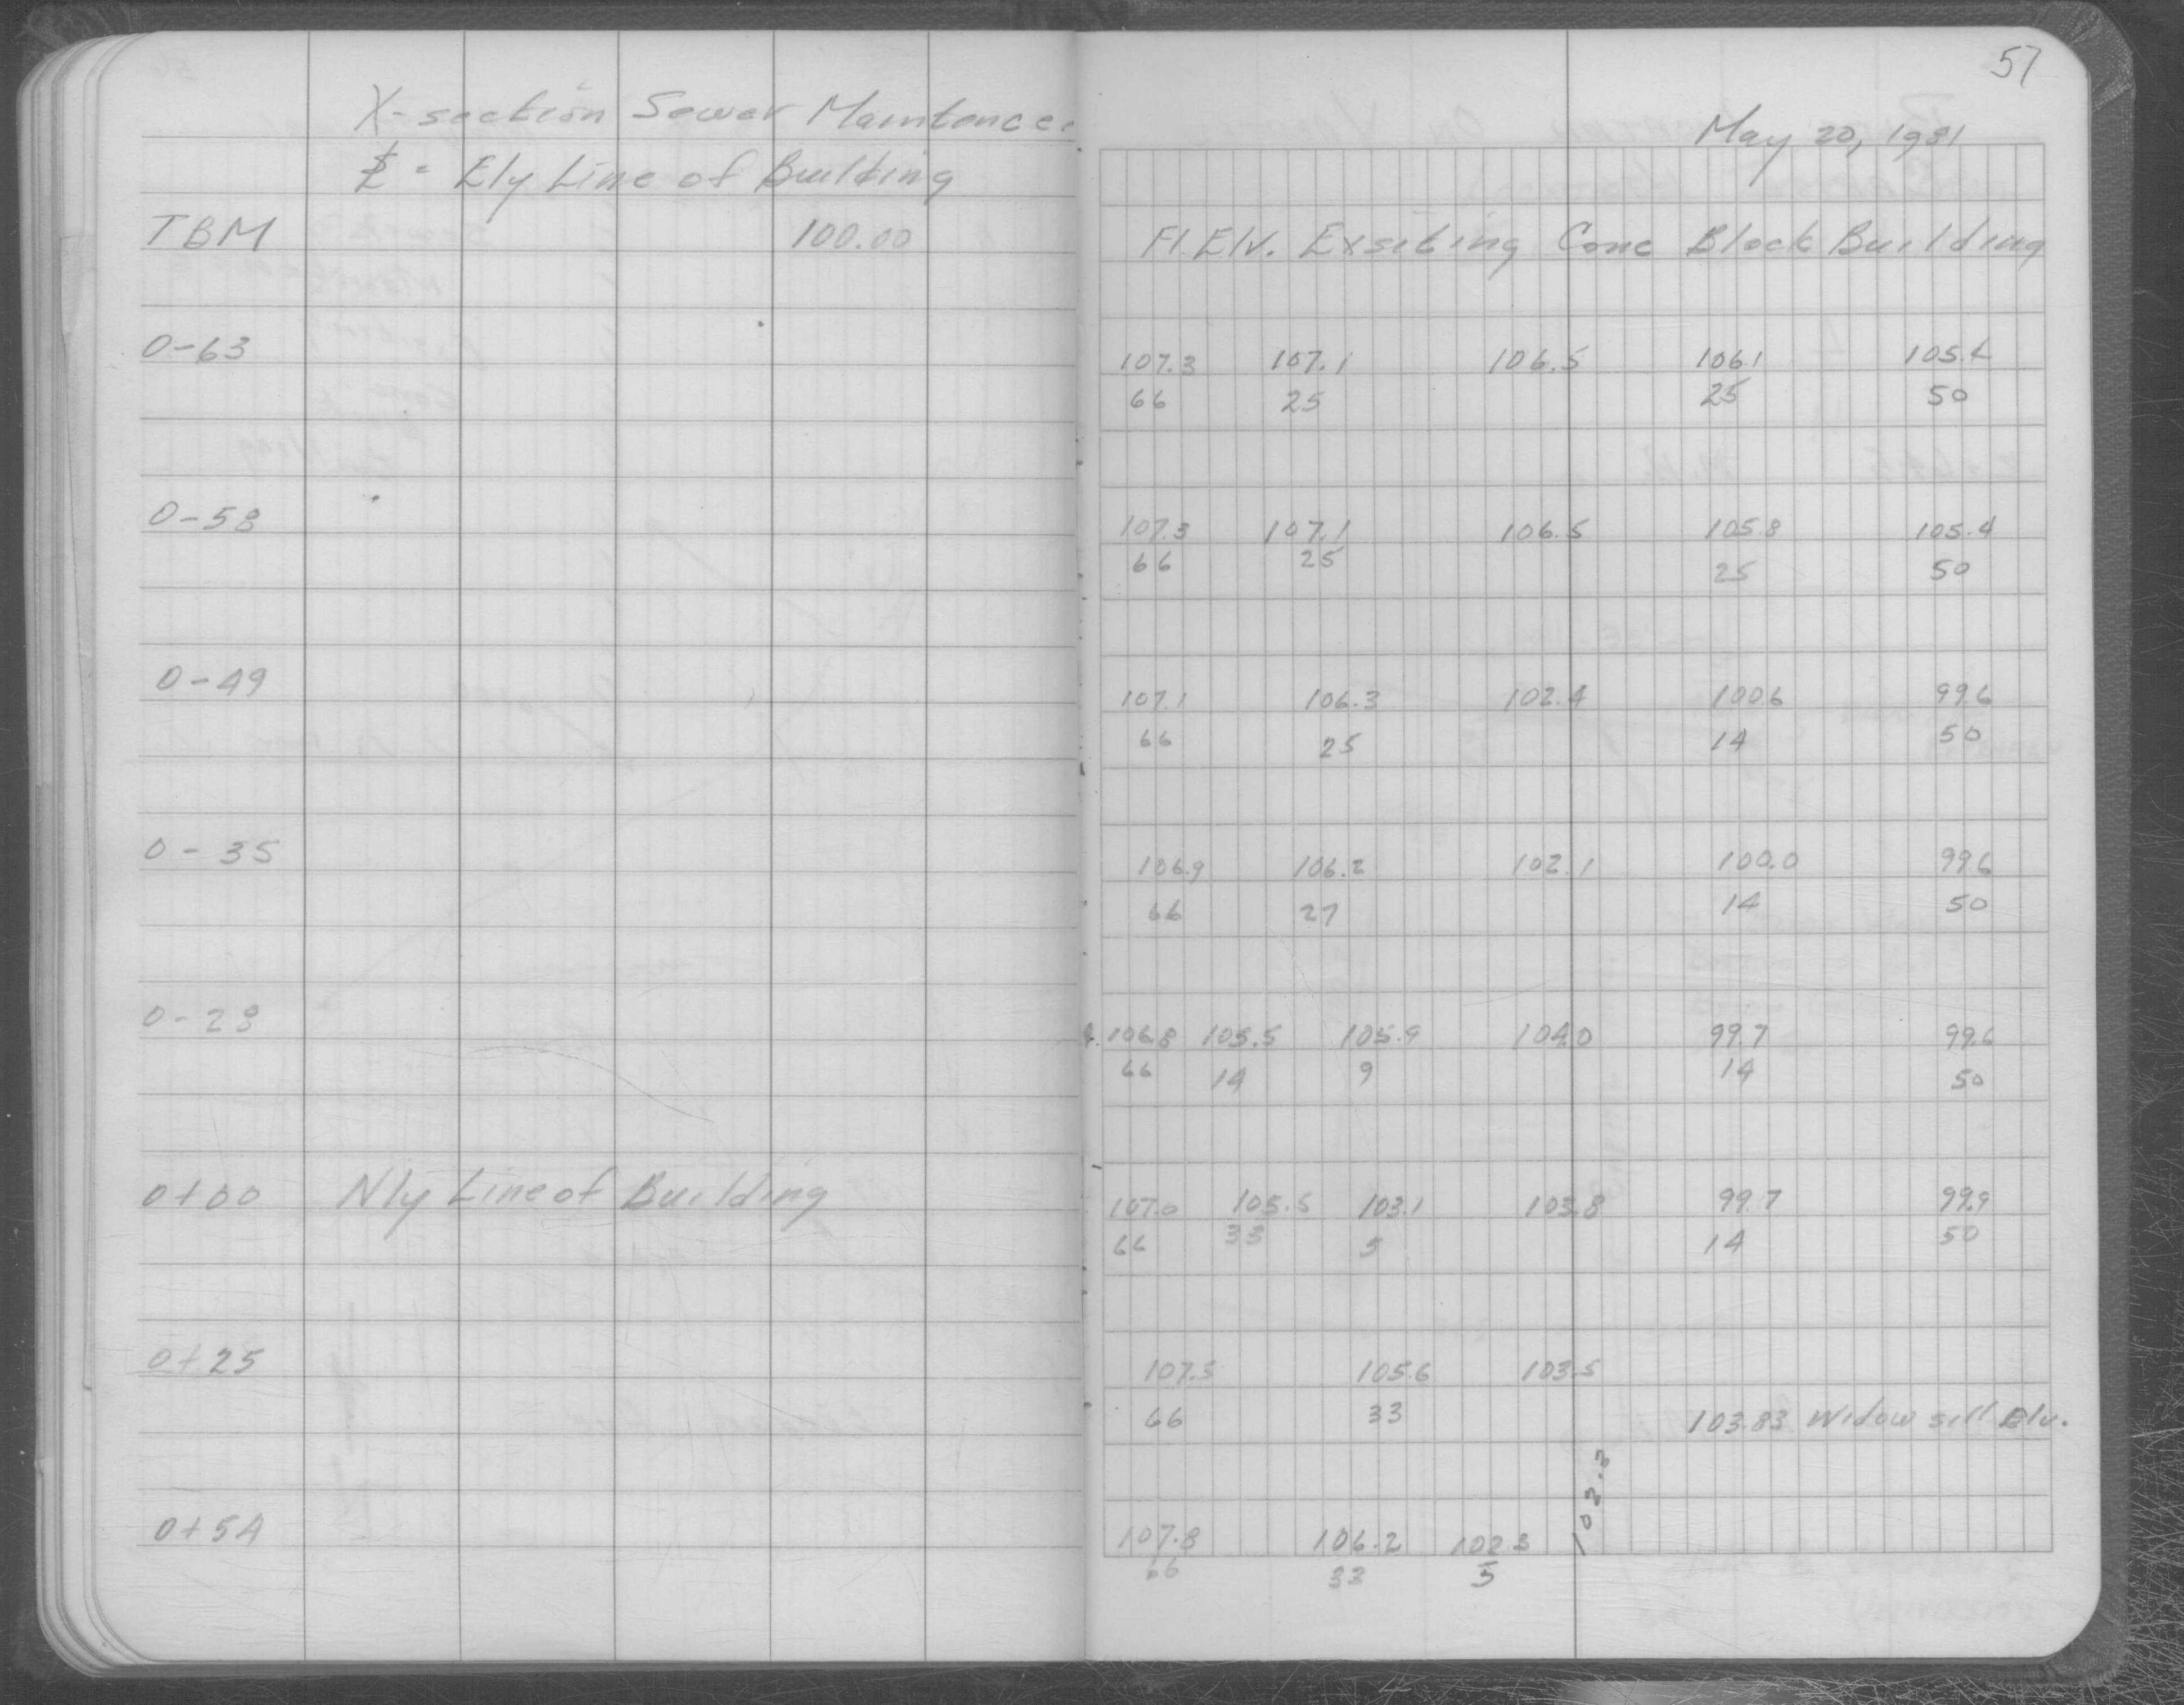 57
X-section Sewer Maintance
May 20, 1981
℄ = Ely Line of Building
TBM 100.00 Fl. Elv. Exsiting Conc Block Building
0-63 107.3 107.1 106.5 106.1 105.4
66 25 25 50
0-58 107.3 107.1 106.5 105.8 105.4
66 25 25 50
0-49 107.1 106.3 102.4 100.6 99.6
66 25 14 50
0-35 106.9 106.2 102.1 100.0 99.6
66 27 14 50
0-28 106.8 105.5 105.9 104.0 99.7 99.6
66 14 9 14 50
0+00 Nly Line of Building 107.0 105.5 103.1 103.8 99.7 99.9
66 33 5 14 50
0+25 107.5 105.6 103.5
66 33 103.83 Widow sill Elv.
102.3
0+54 107.8 106.2 102.3
66 33 5